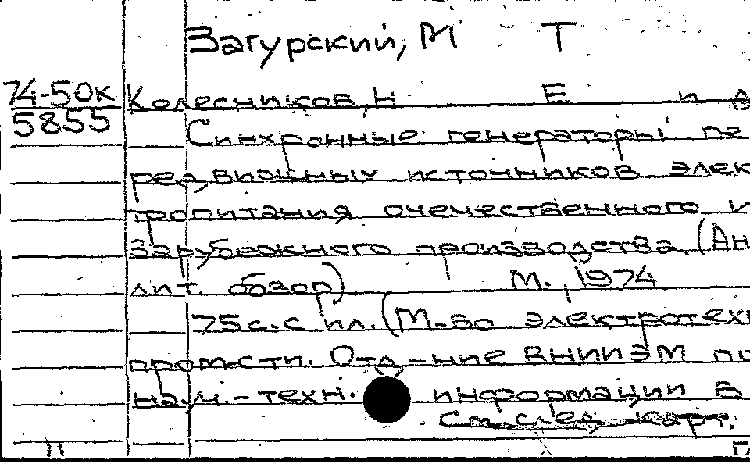 Загурский, М Т
74-50к Колесников, Н Е и д
5855 Синхронные генераторы пе
редвижных источников элек
тропитания отечественного и
зарубежного производства. (Ан
лит. обзор) М., 1974
75 с. с ил. (М-во электротехн
пром-сти. Отд-ние ВНИИЭМ по
науч.-техн. информации в
См. след. карт.